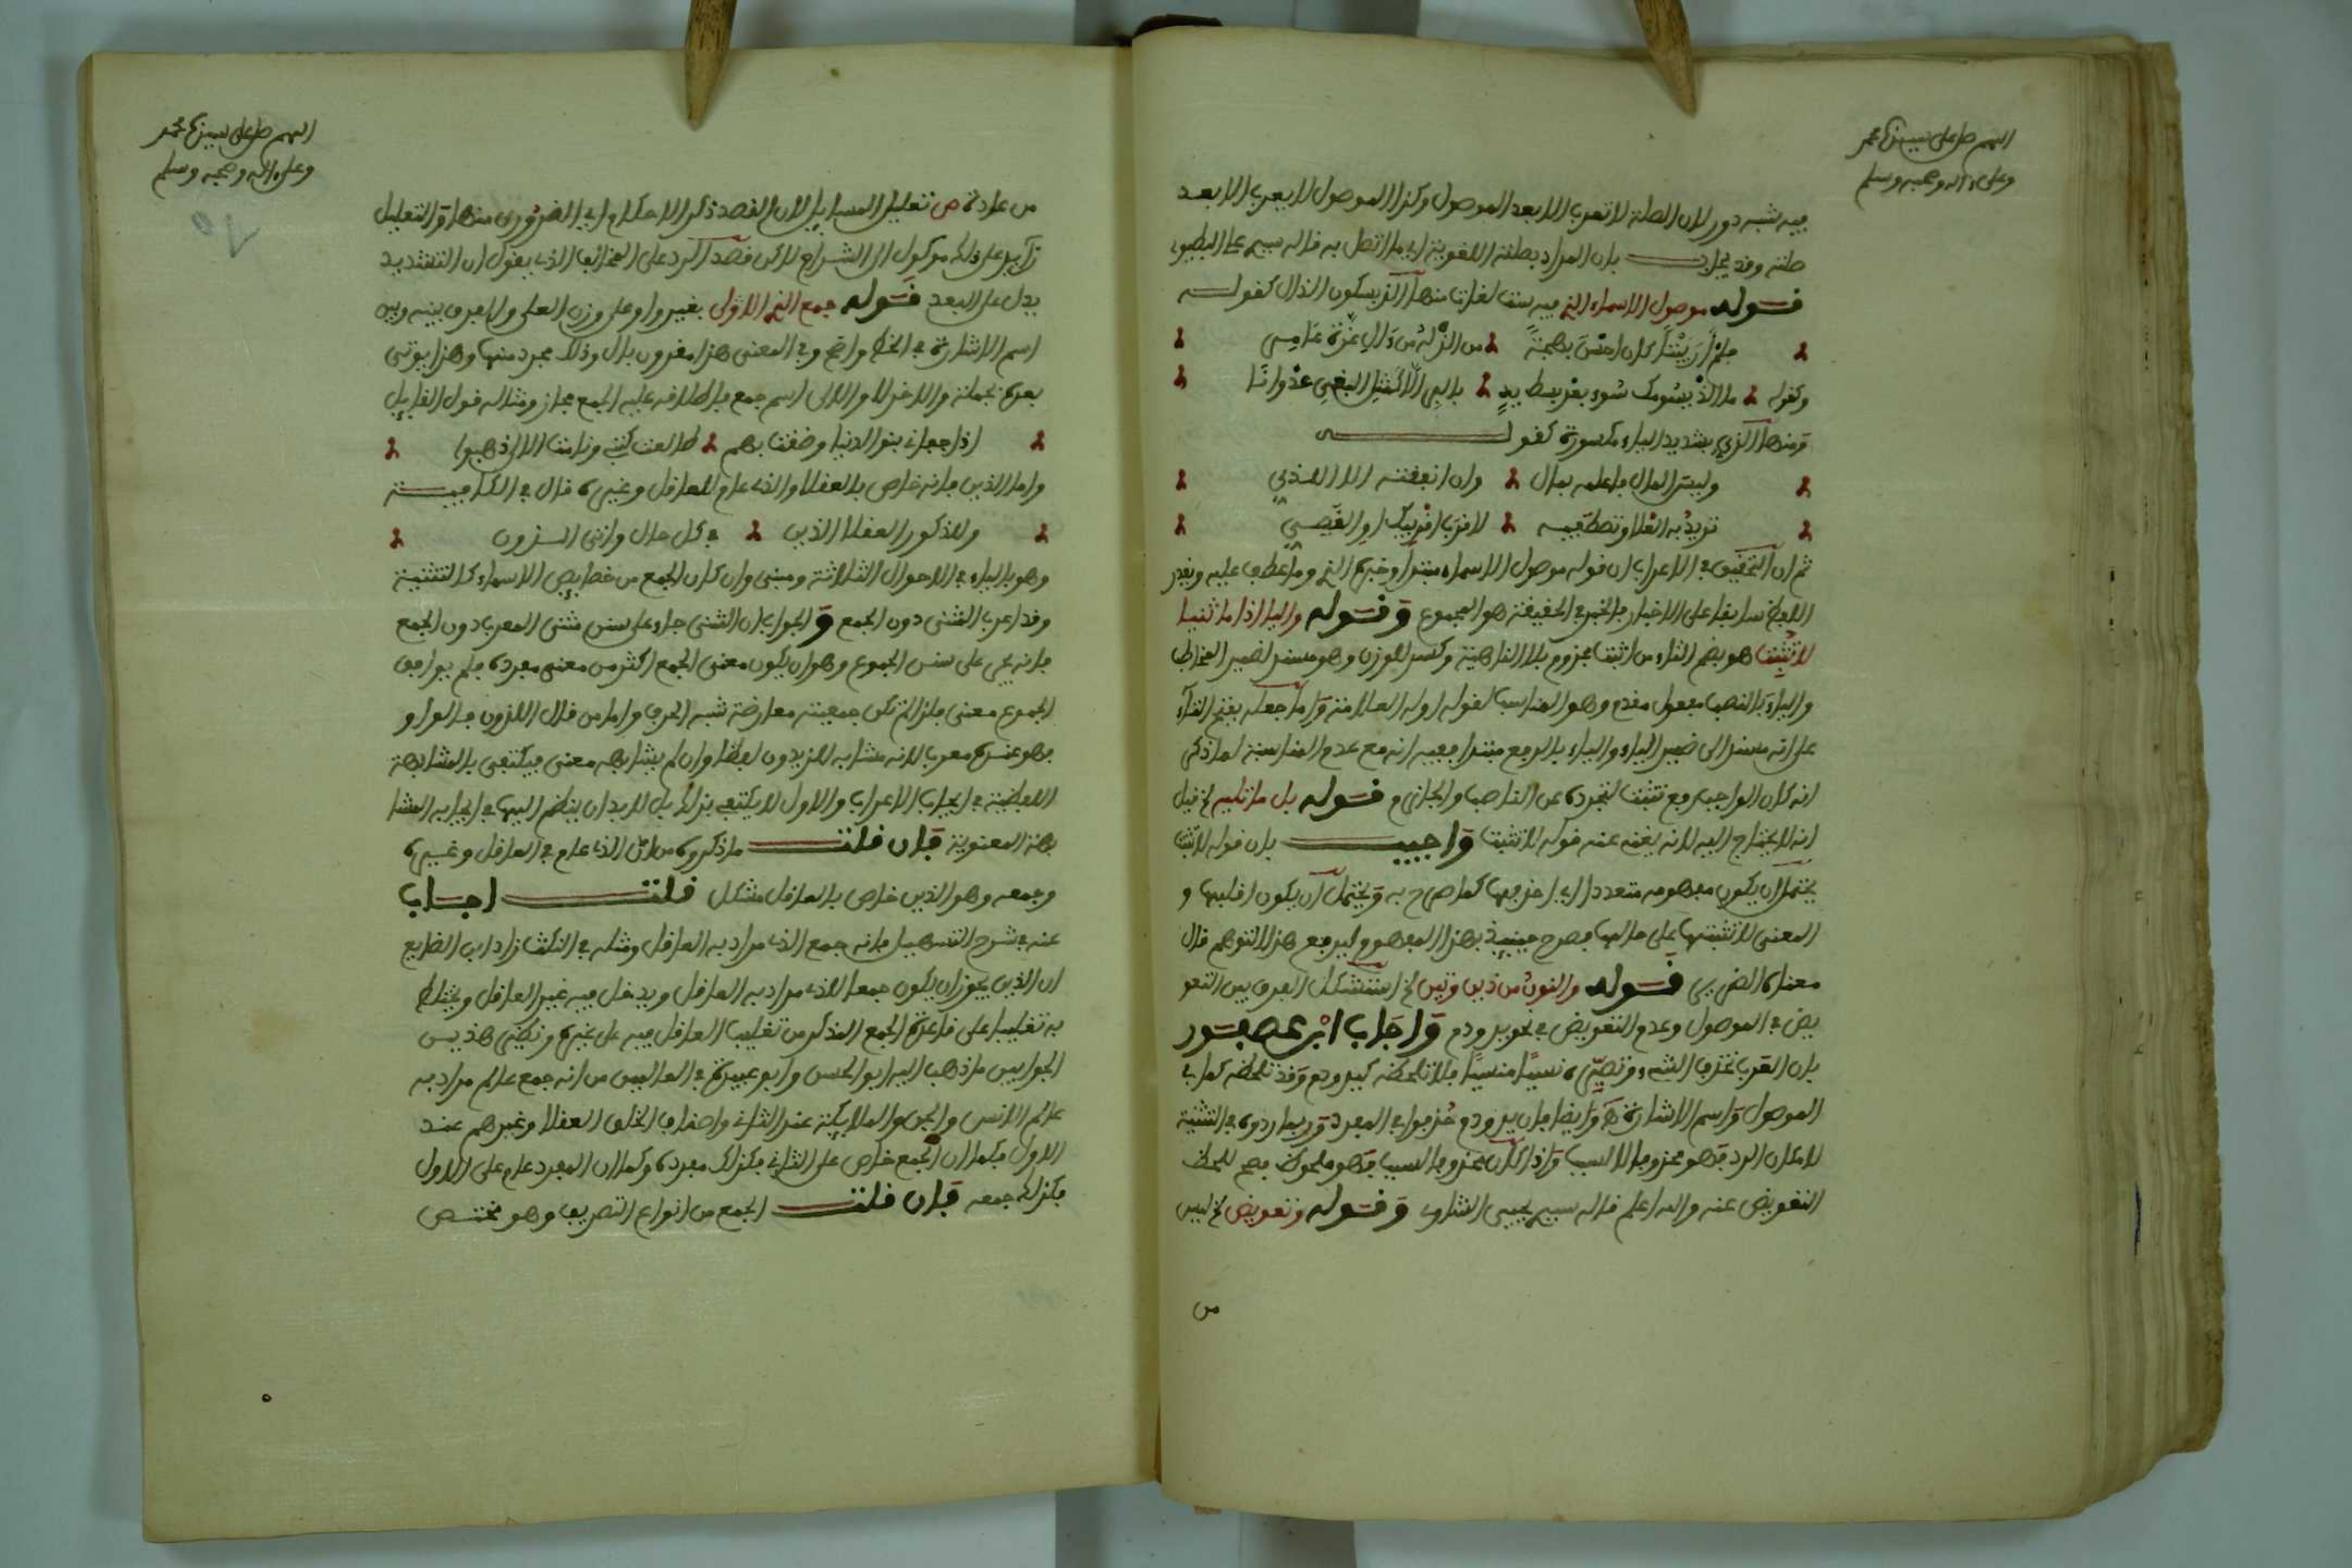 اللهم صل على سيدنا محمد
وعلى ءاله وصحبه وسلم
فيه شبه دور لان الصلة لا تعرب الا بعد الموصول وكذا الموصول لا يعرب الا بعد
صلته وقد يجاب بان المراد بصلته اللغوية اي ما اتصل به قاله سيم على
قوله موصول الاسماء الذي فيه ست لغات منها الذ بسكون الذال كقوله
فلم ار بيتا كان احسن بهجة من الذ له من ءال عزة عامر
وكقوله ما الذ يسومك سوء بعد بسط يد بالبر الا كمثل البغي عدوانا
ومنها الذي بتشديد الياء مكسورة كقوله
وليس المال فاعلمه بمال وان انفقته الا الذي
تريد به العلا وتصطفيه لاقرب اقربيك او القصي
ثم ان التحقيق في الاعراب ان قوله موصول الاسماء مبتدا وخبره الذي وما عطف عليه ويقدر
العطف سابقا على الاخبار فالخبر في الحقيقة هو المجموع وقوله واليا اذا ما ثنيا
لا تثبت هو بضم التاء من اثبت مجزوم بلا الناهية وكسر للوزن وهو مسند لضمير المخاطب
والياء بالنصب مفعول مقدم وهو المناسب لقوله اوله العلامة واما جعله بفتح التاء
على انه مسند الى ضمير الياء والياء بالرفع مبتدا ففيه انه مع عدم المناسبة لما ذكر
انه كان الواجب رفع تثبت لتجرده عن الناصب والجازم قوله بل ما تليه الخ قيل
انه لا يحتاج اليه لانه يغني عنه قوله لا تثبت واجيب بان قوله لا تثبت
يحتمل ان يكون مفهومه متعددا اي احذفها كما صرح به ويحتمل ان يكون اقلبها و
المعنى لا تثبتها على حالها فصرح حينيذ بهذا المفهوم ليرفع هذا التوهم قال
معناه الضرير قوله والنون من ذين وتين الخ استشكل الفرق بين التعو
يض في الموصول وعدم التعويض في نحو يد ودم واجاب ابن عصفور
بان العرب تحذف الشيء وتصيره نسيا منسيا فلا تلحظه كيد ودم وقد تلحظه كما في
الموصول واسم الاشارة وايضا فان يد ودم حذفوا في المفرد وربما ردوه في التثنية
لا مكان الرد فهو محذوف لا لسبب واذا كان محذوفا لسبب فهو ملحوظ فصح للحظ
التعويض عنه والله اعلم قاله سيم يحيى الشاوي وقوله وتعويض الخ ليس
من
اللهم صل على سيدنا محمد
وعلى ءاله وصحبه وسلم
من عادة ص تعليل المسايل لان القصد ذكر الاحكام اي الضروري منها والتعليل
زايد على ذلك موكول الى الشراح لكن قصد الرد على المخالف الذي يقول ان التشديد
يدل على البعد قوله جمع الذي الاولى بغير واو على وزن العلى والفرق بينه وبين
اسم الاشارة في الخط واضح وفي المعنى هذا مقرون بال وذلك مجرد منها وهذا يوتى
بعده بجملة والاخر لا والالى اسم جمع فاطلاقه عليه الجمع مجاز ومثاله قول القايل
اذا جفاني بنو الدنيا وضقت بهم طالعت كتبي ونابت الالى ذهبوا
واما الذين فانه خاص بالعقلا والذي عام للعاقل وغيره قال في الكافية
وللذكور العقلا الذين في كل حال واتى الذون
وهو بالياء في الاحوال الثلاثة ومبني وان كان الجمع من خصايص الاسماء كالتثنية
وقد اعرب المثنى دون الجمع والجواب ان المثنى جاء على سنن مثنى المعرب دون الجمع
فانه يجي على سنن الجموع وهو ان يكون معنى الجمع اكثر من معنى مفرده فلم يوافق
الجموع معنى فلذا لم تكن جمعيته معارضة شبه الحرف واما من قال اللذون فالواو
فهو عنده معرب لانه مشابه للزيدون لفظا وان لم يشابهه معنى فيكتفى بالمشابهة
اللفظية في ايجاب الاعراب والاول لا يكتفي بذلك بل لا بد ان ينضم اليها في ايجابه المشا
بهة المعنوية فان قلت ما ذكروه من ان الذي عام في العاقل وغيره
وجمعه وهو الذين خاص بالعاقل مشكل قلت اجاب
عنه في شرح التسهيل بانه جمع الذي مراد به العاقل ومثله في النكت زاد ابن الضايع
ان الذين يجوز ان يكون جمعا للذي مراد به العاقل ويدخل فيه غير العاقل
به تغليبا على قاعدة الجمع المذكر من تغليب العاقل فيه على غيره ونظير هذين
الجوابين ما ذهب اليه ابو الحسن وابو عبيدة في العالمين من انه جمع عالم مراد به
عالم الانس والجن والملايكة عند الثاني واصناف الخلق العقلا وغيرهم عند
الاول فكما ان الجمع خاص على الثاني فكذلك مفرده وكما ان المفرد عام على الاول
فكذلك جمعه فان قلت الجمع من انواع التصريف وهو مختص